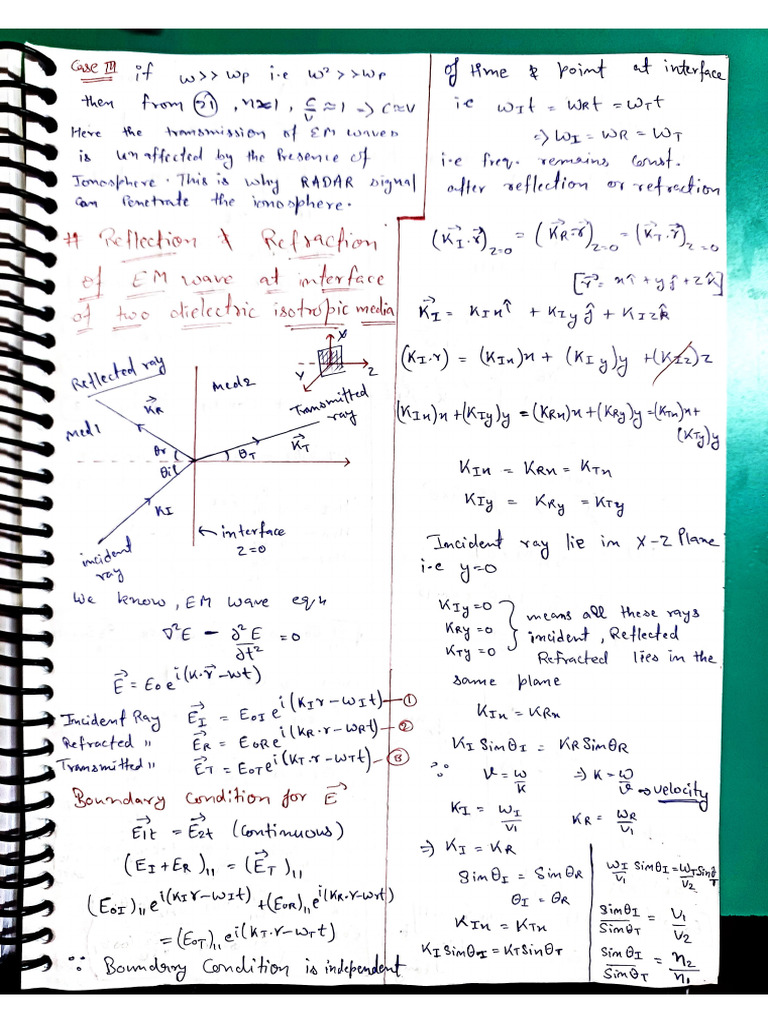 Case III if w>>wp i.e w²>>wp
then from (21), n≈1, c/v ≈1 => c≈v
Here the transmission of EM waves
is unaffected by the Presence of
Ionosphere. This is why RADAR signal
can Penetrate the ionosphere.
# Reflection & Refraction
of EM wave at interface
of two dielectric isotropic media
X
Y
Z
Reflected ray
med2
Transmitted
ray
med1
K⃗R
θr
θi
θT
K⃗T
KI
incident
ray
interface
z=0
We know, EM wave eqn
∇²E - ∂²E/∂t² = 0
E⃗ = E₀e^i(k·r⃗-wt)
Incident Ray E⃗I = EOI e^i(KI r - wI t) — ①
Refracted " E⃗R = EOR e^i(KR·r - wRt) — ②
Transmitted " E⃗T = EOT e^i(KT·r - wTt) — ③
Boundary Condition for E⃗
E⃗1t = E⃗2t (Continuous)
(EI + ER)11 = (E⃗T)11
(EOI)11 e^i(KI r - wIt) + (EOR)11 e^i(KR·r - wrt)
= (EOT)11 e^i(KT·r - wTt)
∵ Boundry Condition is independent
of time & point at interface
i.e wIt = wRt = wTt
=> wI = wR = wT
i.e freq. remains const.
after reflection or refraction
(K⃗I·r⃗)z=0 = (K⃗R·r⃗)z=0 = (K⃗T·r⃗)z=0
[r⃗ = xî + yĵ + zk̂]
K⃗I = KIx î + KIy ĵ + KIz k̂
(KI·r) = (KIx)x + (KIy)y + (KIz)z
(KIx)x + (KIy)y = (KRx)x + (KRy)y = (KTx)x +
(KTy)y
KIx = KRx = KTx
KIy = KRy = KTy
Incident ray lie in X-Z Plane
i.e y=0
KIy=0
KRy=0
KTy=0
means all these rays
incident, Reflected
Refracted lies in the
same plane
KIx = KRx
KI SinθI = KR SinθR
∵ v = w/k => K = w/v → velocity
KI = wI/v1 KR = wR/v1
=> KI = KR
SinθI = SinθR
θI = θR
KIx = KTx
KI SinθI = KT SinθT
wI/v1 SinθI = wT/v2 SinθT
SinθI/SinθT = v1/v2
SinθI/SinθT = n2/n1